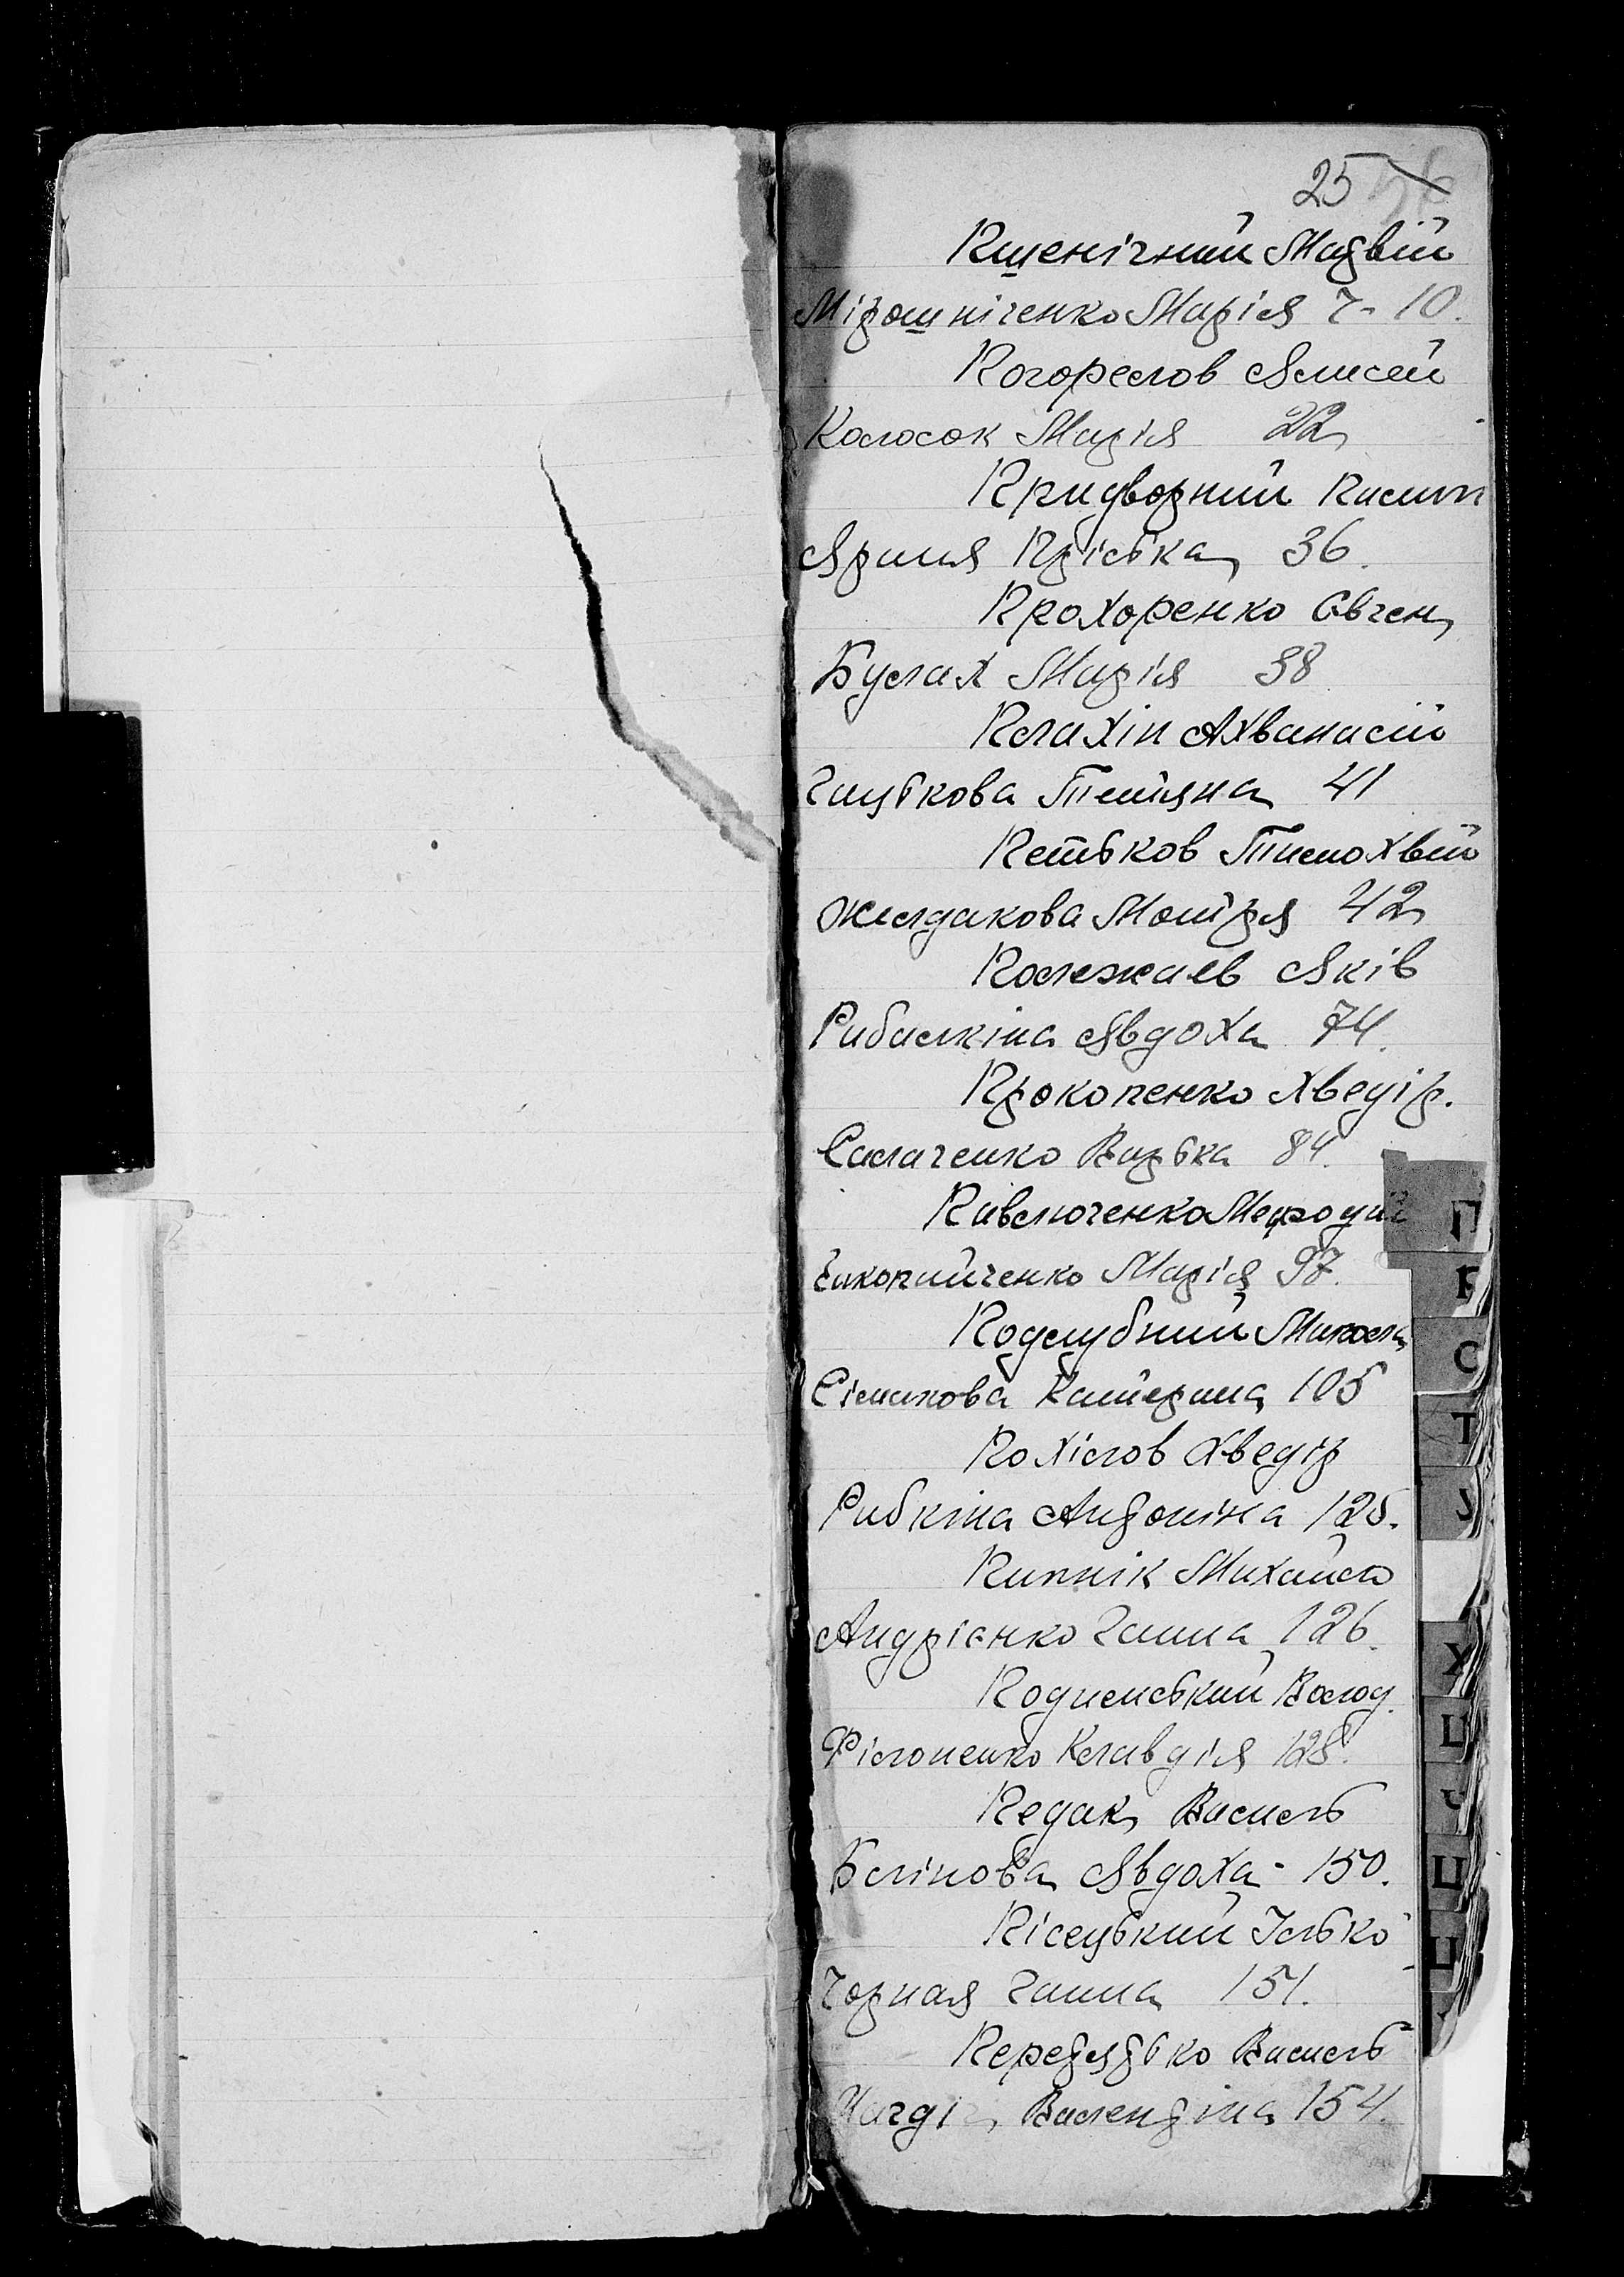 25
Пшенічний Матвій
Мірошніченко Марія 7-10.
Погорєлов Ялисей
Колосок Марія 22
Придворний Пилип
Ярина Прієька 36.
Прохоренко Явген
Буслах Марія 38
Плахін Ахванасій
Глубкова Тетяна 41
Петьков Тимохвій
Желдакова Мотря 42
Полежаєв Яків
Рибалкіна Явдоха 74.
Прокопенко Хведір.
Салаченко Варька 84.
Павлюченко Меходий
Марія 97.
Подлубний Микола
Сімакова Катерина 105
Похілов Хведір
Рибкіна Антоніна 125.
Пиннік Михайло
Андрієнко Ганна 126.
Подимський Волод.
Філоненко Клавдія 128.
Педак Василь
Блінова Явдоха - 150.
Пісецький Ілько
Чорная Ганна 151.
Передядько Василь
Валентіна 154.
П
Р
С
Т
У
Х
Ц
Ч